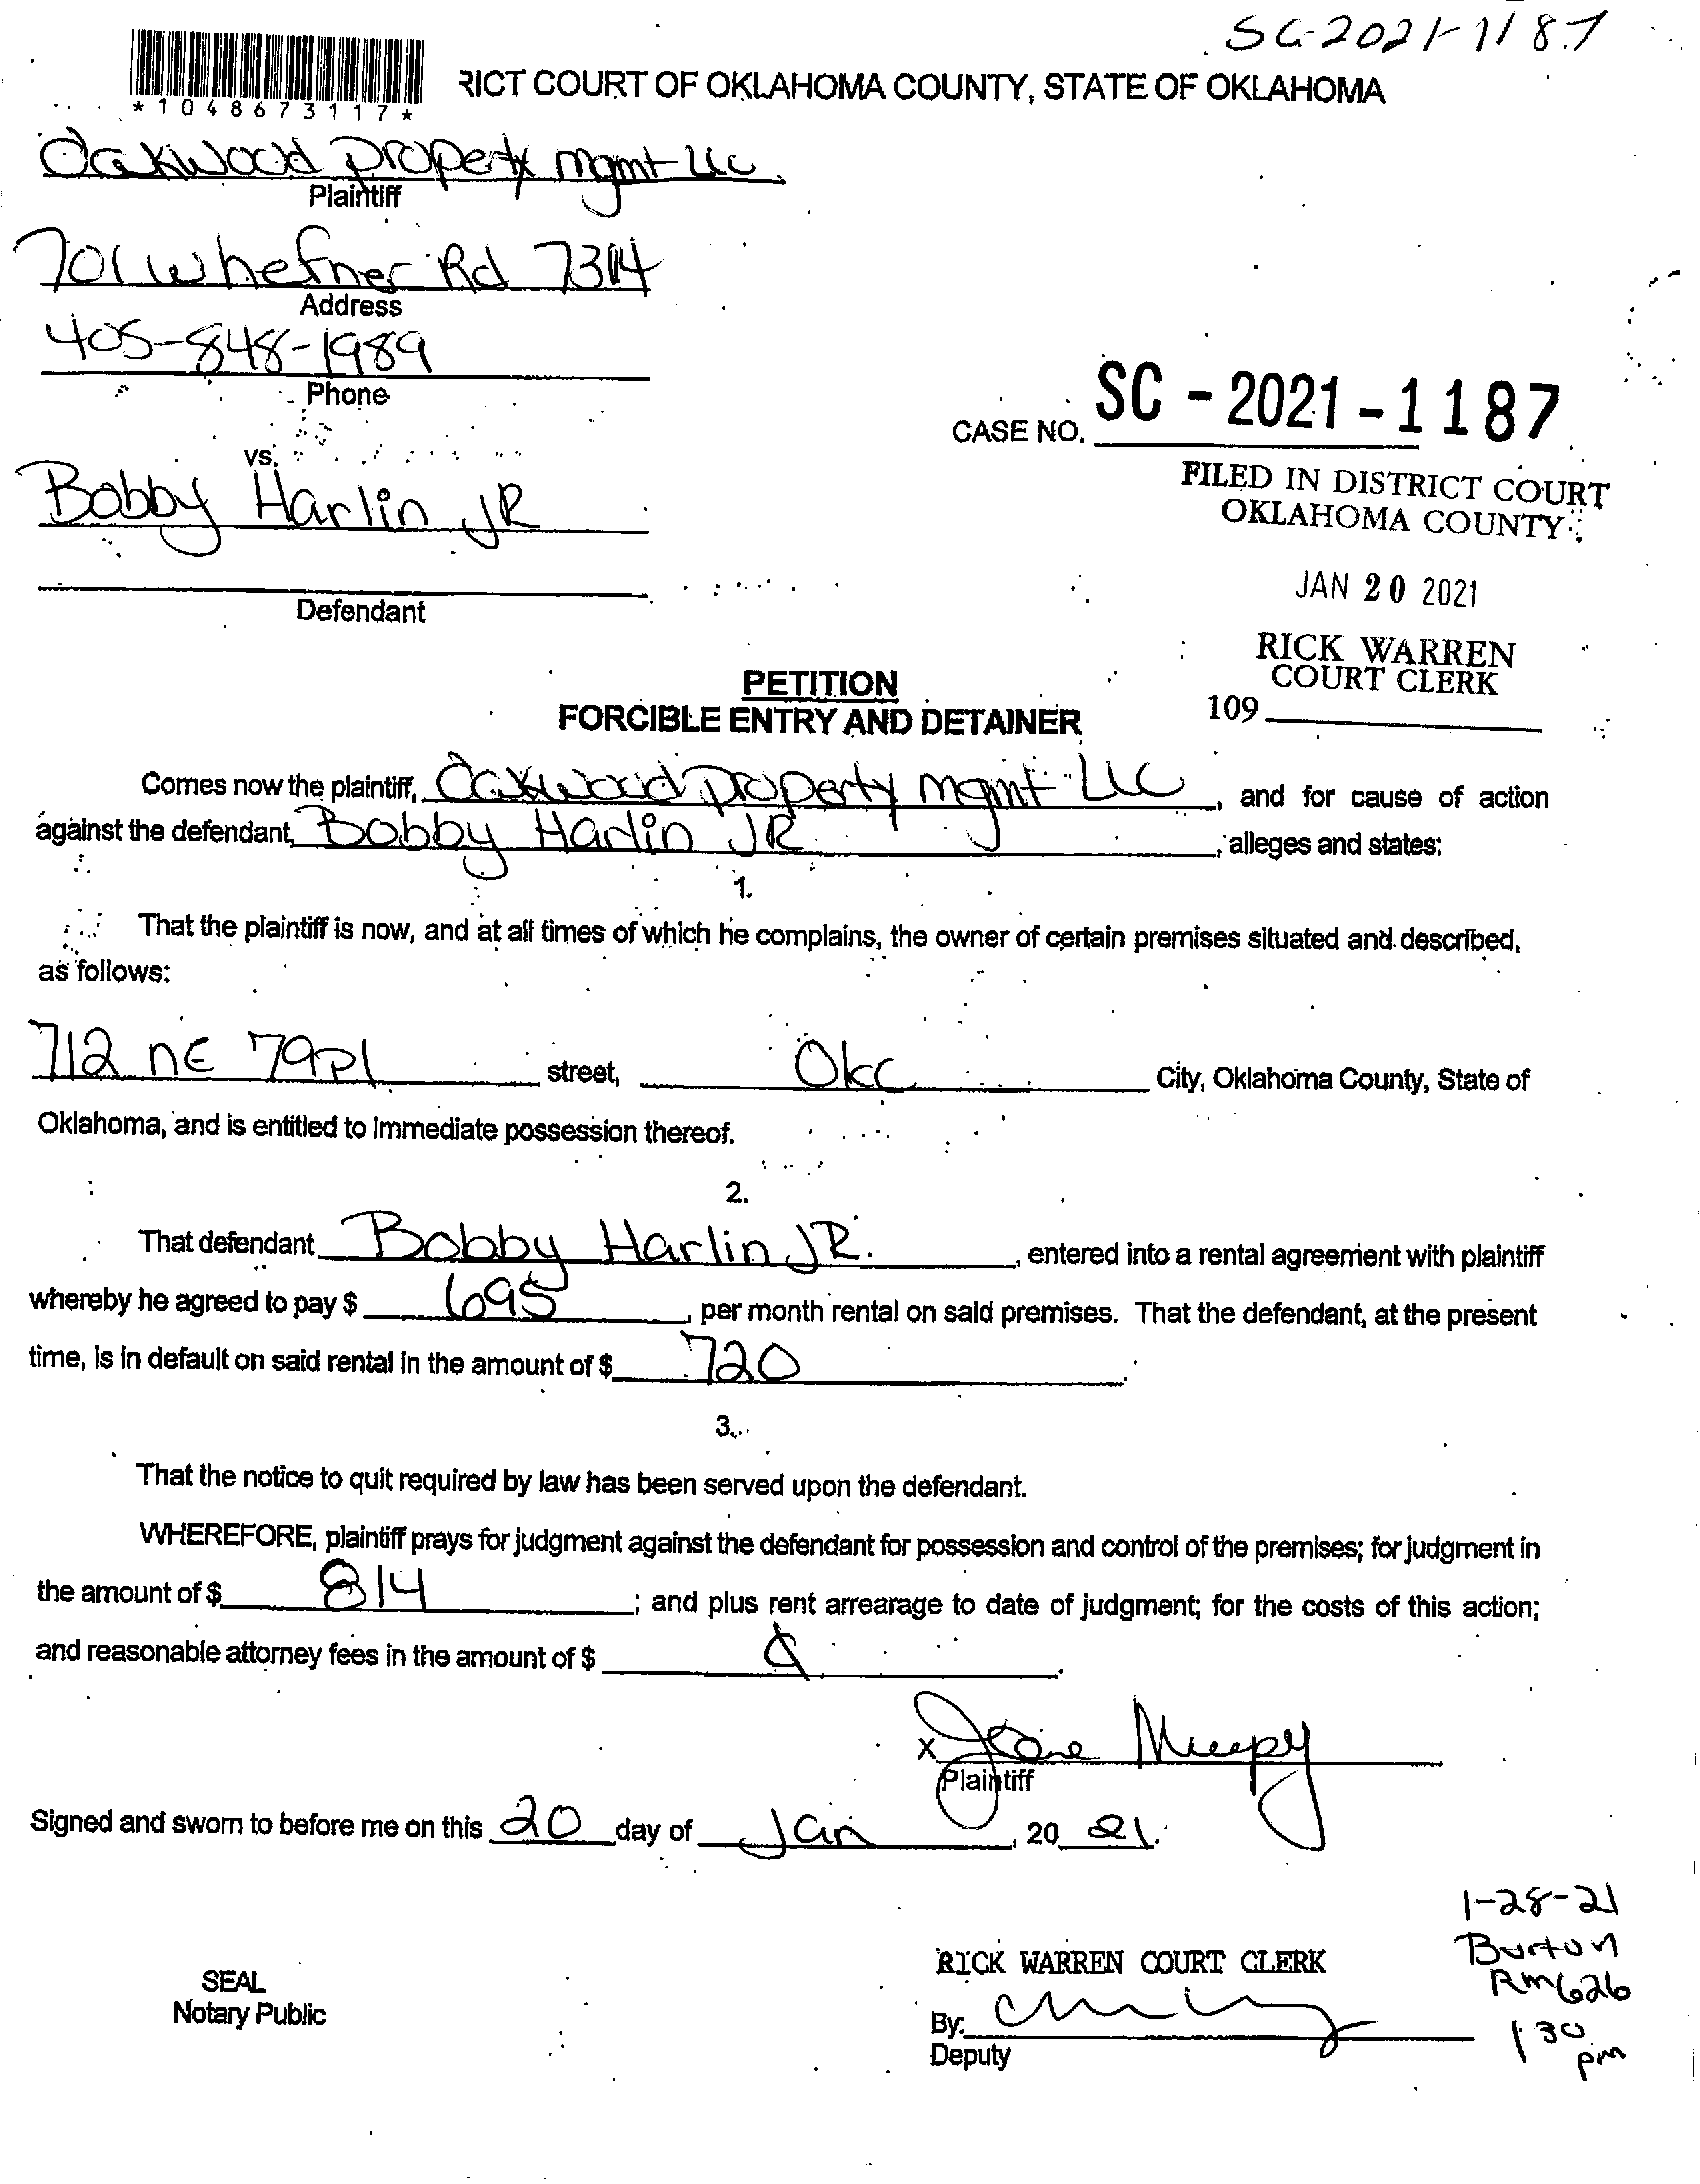 SC-2021-1187
*1048673117*
RICT COURT OF OKLAHOMA COUNTY, STATE OF OKLAHOMA
Oakwood property mgmt LLC
Plaintiff
701 W hefner Rd 73114
Address
405-848-1989
Phone
CASE NO. SC - 2021 - 1187
vs.
FILED IN DISTRICT COURT
OKLAHOMA COUNTY
Bobby Harlin JR
JAN 20 2021
Defendant
RICK WARREN
COURT CLERK
109
PETITION
FORCIBLE ENTRY AND DETAINER
Comes now the plaintiff, Oakwood property mgmt LLC, and for cause of action
against the defendant, Bobby Harlin JR, alleges and states:
1.
That the plaintiff is now, and at all times of which he complains, the owner of certain premises situated and described,
as follows:
712 NE 79Pl street, OKC City, Oklahoma County, State of
Oklahoma, and is entitled to immediate possession thereof.
2.
That defendant Bobby Harlin JR., entered into a rental agreement with plaintiff
whereby he agreed to pay $ 695, per month rental on said premises. That the defendant, at the present
time, is in default on said rental in the amount of $ 720.
3.
That the notice to quit required by law has been served upon the defendant.
WHEREFORE, plaintiff prays for judgment against the defendant for possession and control of the premises; for judgment in
the amount of $ 814; and plus rent arrearage to date of judgment; for the costs of this action;
and reasonable attorney fees in the amount of $
x
Plaintiff
Signed and sworn to before me on this 20 day of Jan, 20 21.
1-28-21
Burton
Rm 626
1:30
pm
RICK WARREN COURT CLERK
SEAL
Notary Public
By:
Deputy